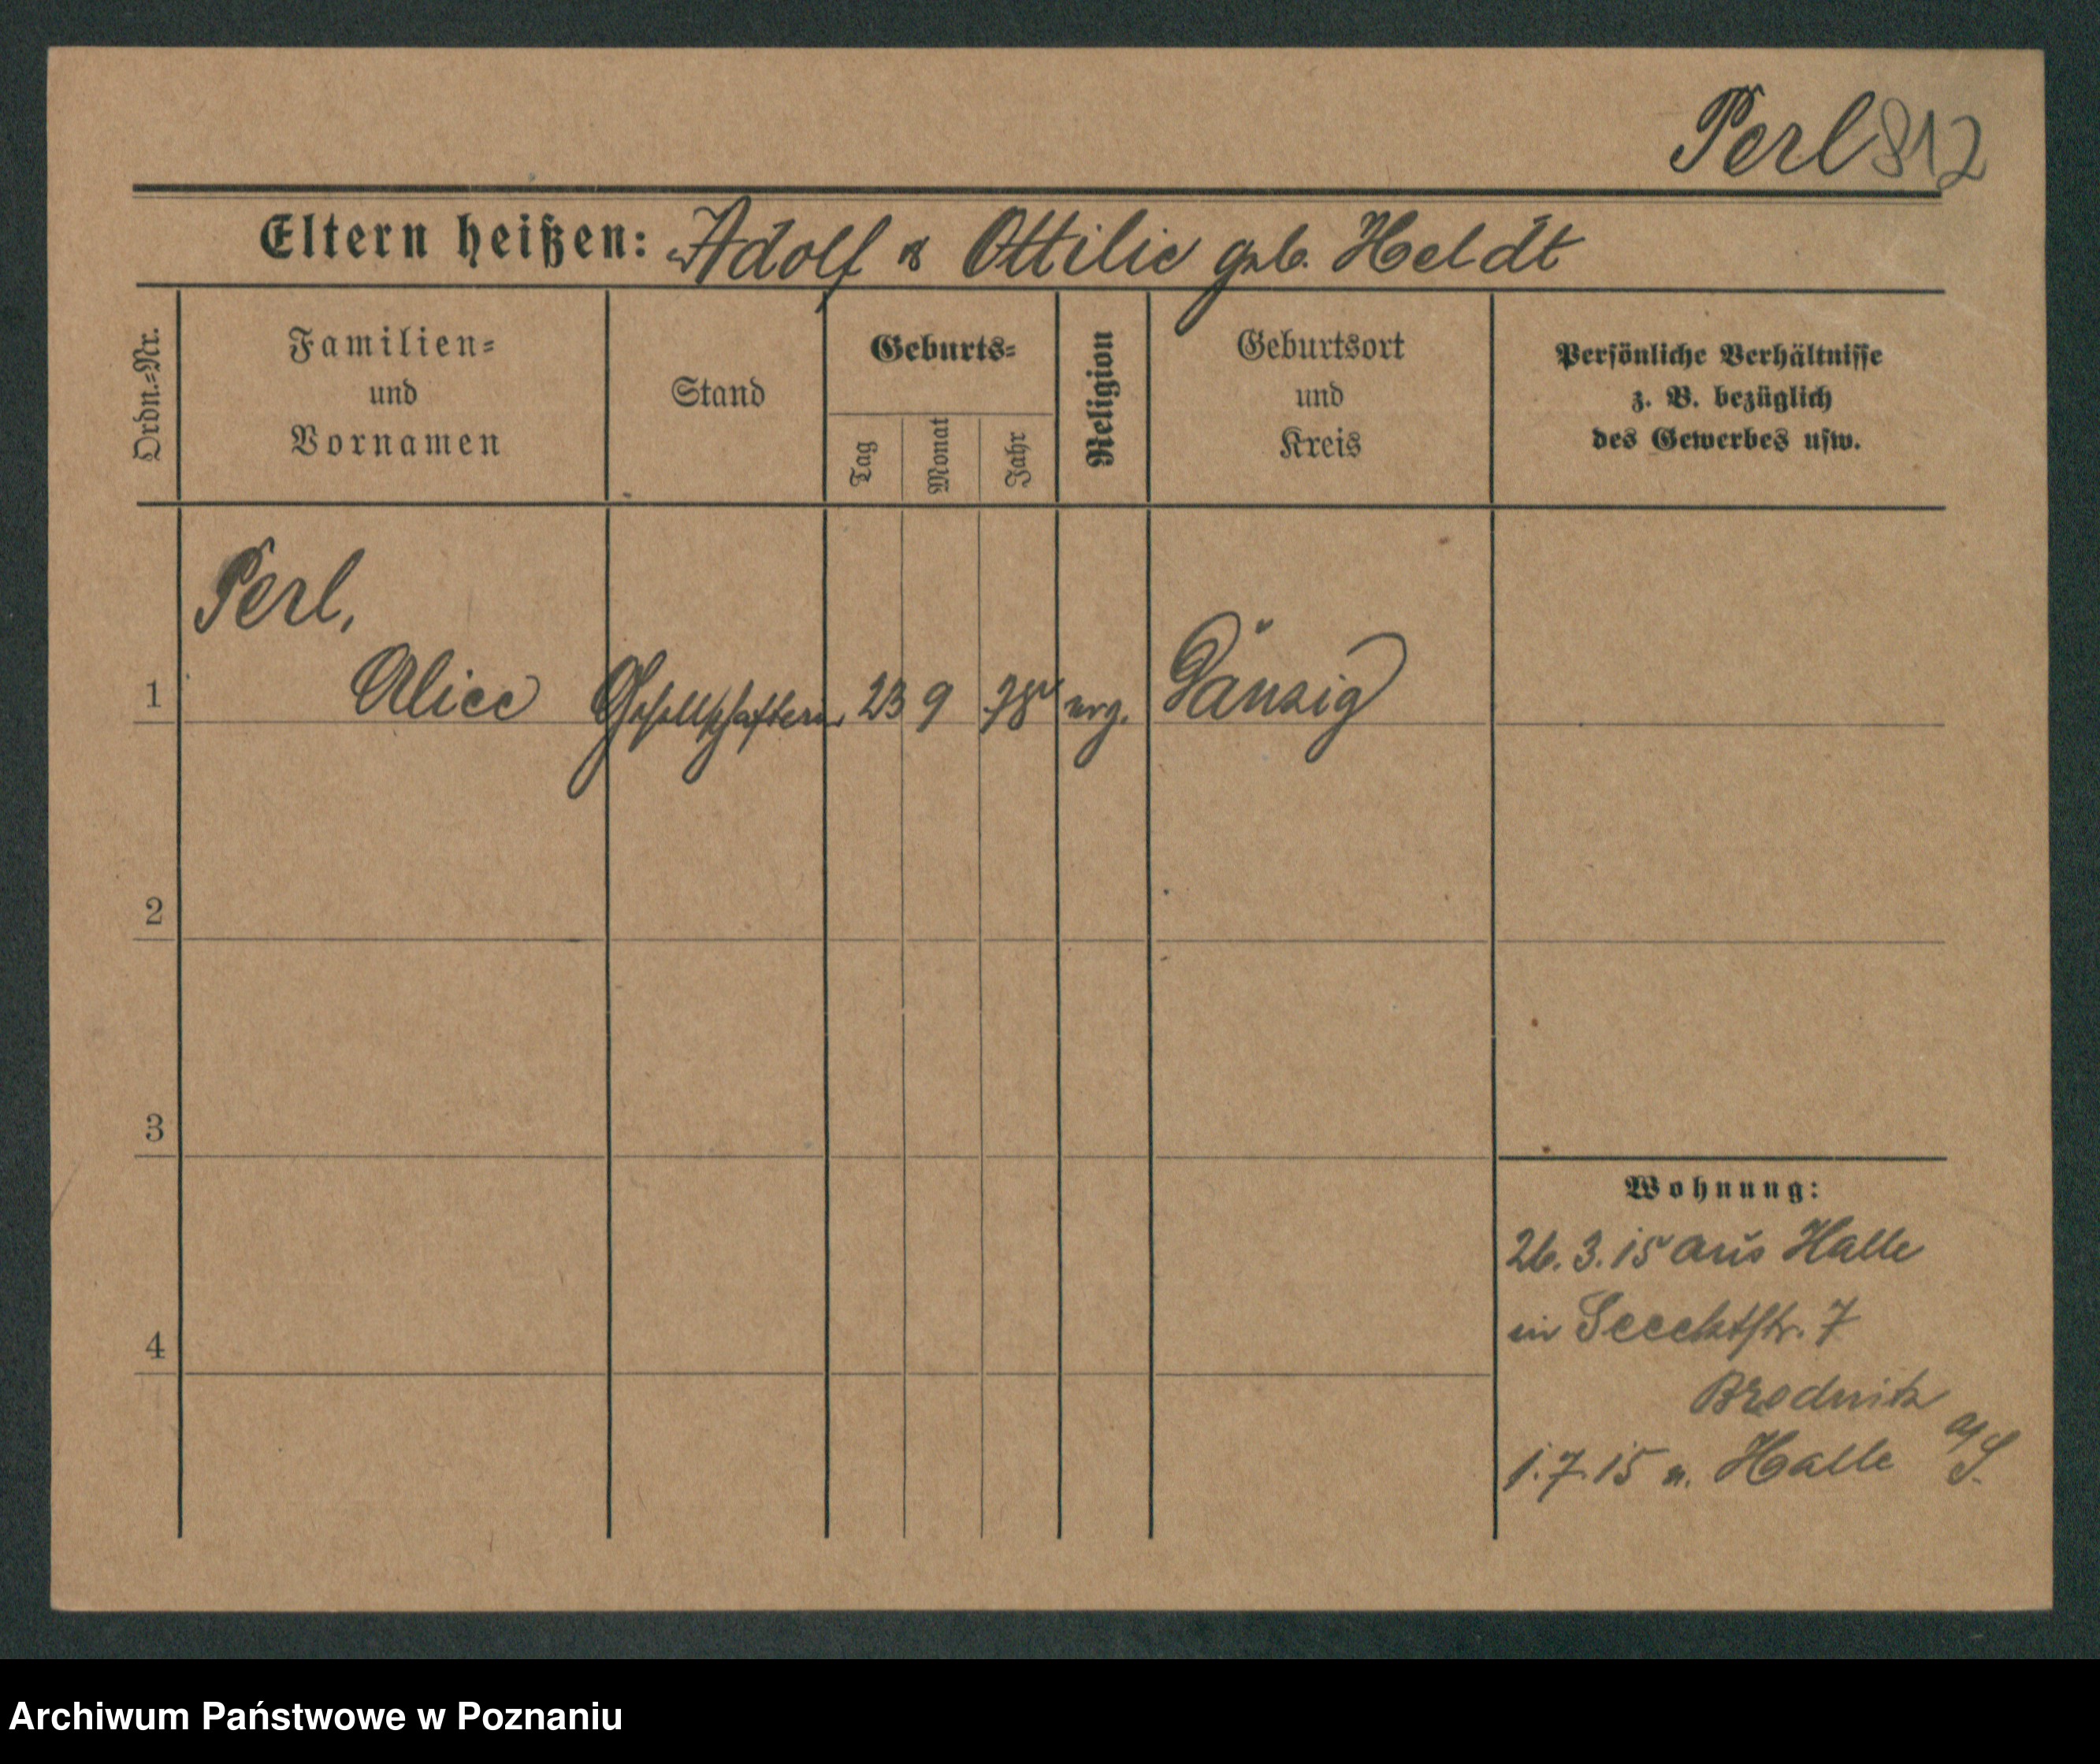 Perl 812
Eltern heißen: Adolf & Ottilie geb. Heldt
Ordn.=Nr.
Familien=
und
Vornamen
Stand
Geburts=
Tag
Monat
Jahr
Religion
Geburtsort
und
Kreis
Persönliche Verhältnisse
z. B. bezüglich
des Gewerbes usw.
Perl,
1 Alice Gesellschafterin 23 9 78 evg. Danzig
2
3
4
Wohnung:
26.3.15 aus Halle
in Seecktstr. 7
Brodnitz
1.7.15 n. Halle a/S.
Archiwum Państwowe w Poznaniu